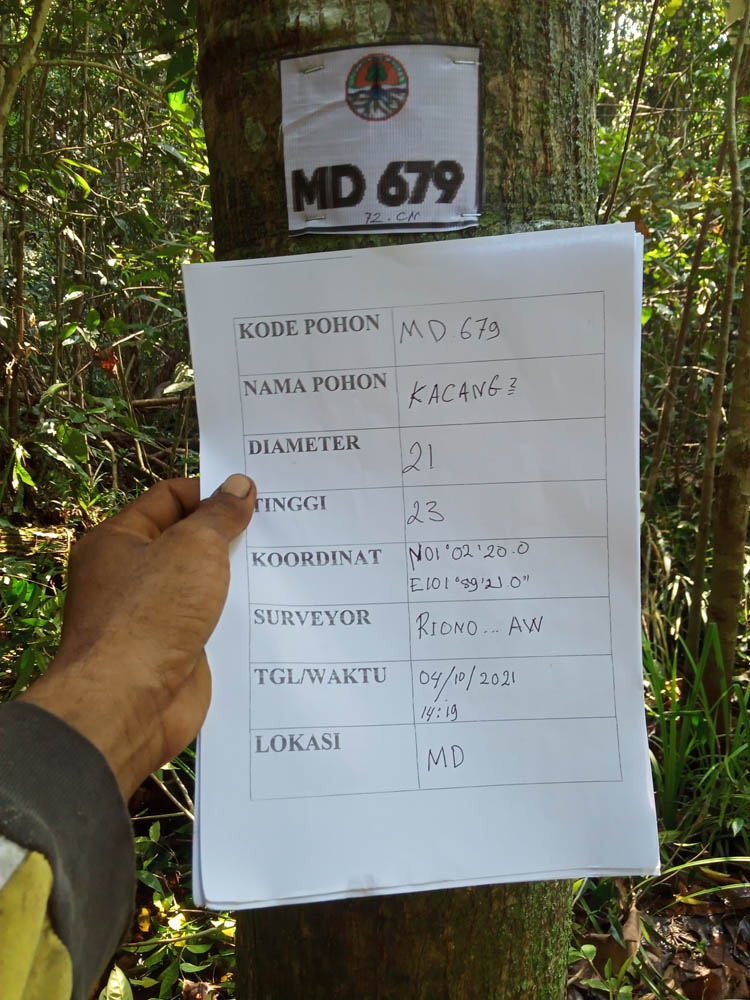 MD 679
72.CM
KODE POHON MD 679
NAMA POHON KACANG2
DIAMETER 21
TINGGI 23
KOORDINAT N01°02'20.0
E101°89'21.0"
SURVEYOR RIONO... AW
TGL/WAKTU 04/10/2021
14:19
LOKASI MD